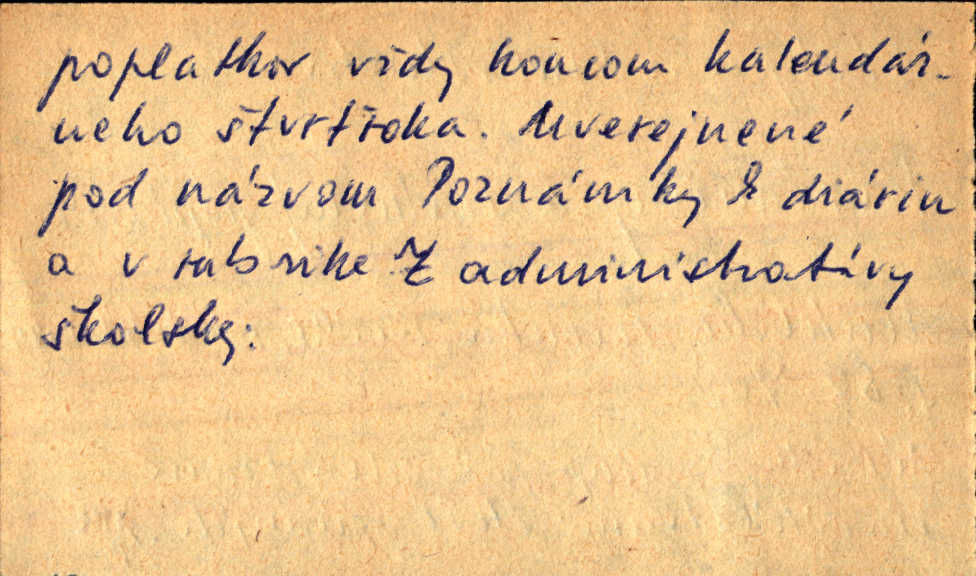 poplatkov vždy koncom kalendár-
neho štvrťroka. Uverejnené
pod názvom Poznámky k diáriu
a v rubrike Z administratívy
školskej: